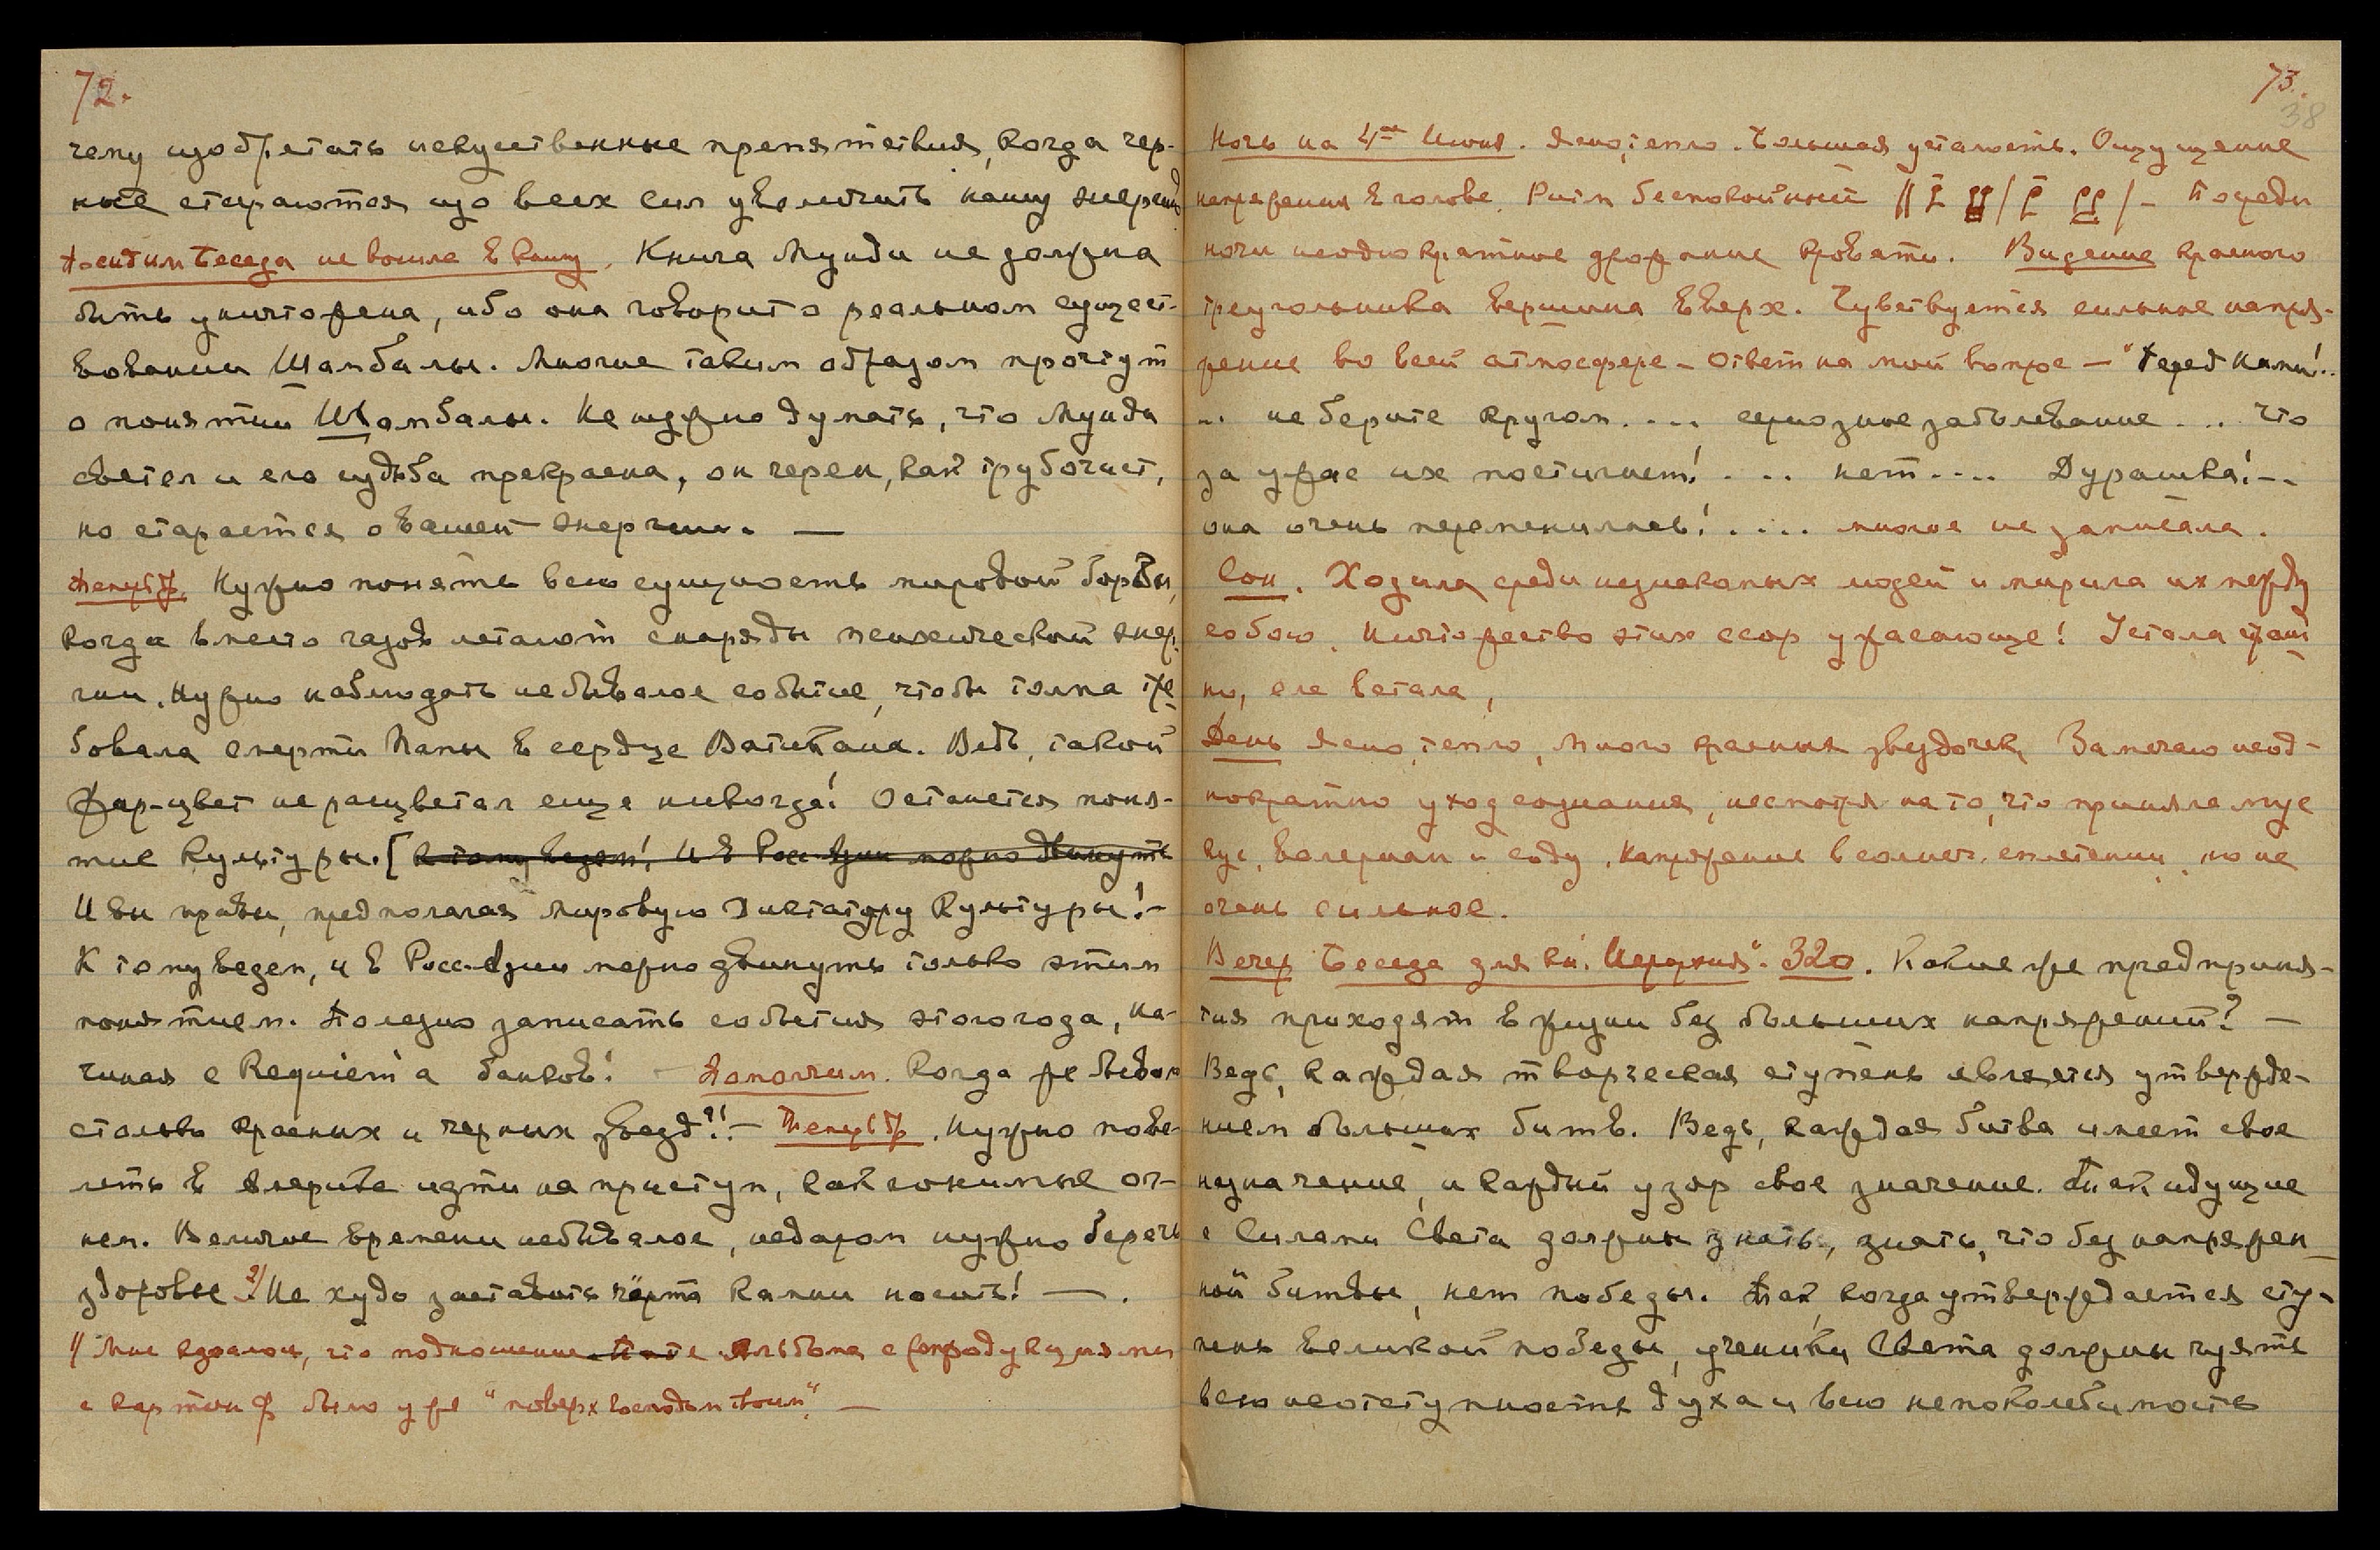 72.
чему изобретать искусственные препятствия, когда чер-
ные стараются изо всех сил увеличить нашу энергию
Беседа не вошла в книгу. Книга Мунди не должна
быть уничтожена, ибо она говорит о реальном сущест-
вовании Шамбалы. Многие таким образом прочтут
о понятии Шамбалы. Не нужно думать, что Мунди
светел и его судьба прекрасна, он черен, как трубочист,
но старается о вашей энергии. —
Нужно понять всю сущность мировой борьбы,
когда вместо газов летают снаряды психической энер-
гии. Нужно наблюдать небывалое событие, чтобы толпа тре
бовала смерти Папы в сердце Ватикана. Ведь, такой
Жар-цвет не расцветал еще никогда! Останется поня-
тие Культуры. [К тому ведем! И в Росс. Азии можно двинуть
И вы правы, предполагая Мировую Диктатуру Культуры! –
К тому ведем, и в Росс. Азии можно двинуть только этим
понятием. Полезно записать события этого года, на-
чиная с Requiem'а банков! – Запомним. Когда же видали
столько красных и черных звезд?! – Нужно пове-
леть в Америке идти на приступ, как гонимые ог-
нем. Величие времени небывалое, недаром нужно беречь
здоровье 2/ Не худо заставить чёрта камни носить! — .
1/ Мне казалось, что подношение Альбома с репродукциями
с картин было уже "поверх Господом Твоим". —
73.
38
Ночь на 4ое Июня. Ясно, тепло. Большая усталость. Ощущение
напряжения в голове. Ритм беспокойный – Посреди
ночи неоднократное дрожание кровати. Видение красного
треугольника вершина вверх. Чувствуется сильное напря-
жение во всей атмосфере – Ответ на мой вопрос — "Перед нами!..
... не берите кругом .... серьозное заболевание ... Что
за ужас их постигнет! ... нет .... Дурашка! --
она очень переменилась! .... многое не записала.
Сон. Ходила среди незнакомых людей и мирила их между
собою. Ничтожество этих ссор ужасающе! Устала страш
но, еле встала,
День Ясно, тепло, много красных звездочек Замечаю неод-
нократно уход сознания, несмотря на то, что приняла мус
кус, валериан и соду. Напряжение в солнеч. сплетении, но не
очень сильное.
Вечер Беседа для кн. "Иерархия". 320. Какие же предприя-
тия приходят в жизни без больших напряжений? —
Ведь, каждая творческая ступень является утвержде-
нием больших битв. Ведь, каждая битва имеет свое
назначение, и каждый узор свое значение. Так идущие
с Силами Света должны знать, знать, что без напряжен
ной битвы, нет победы. Так когда утверждается сту-
пень великой победы, ученики Света должны чуять
всю неотступность духа и всю непоколебимость